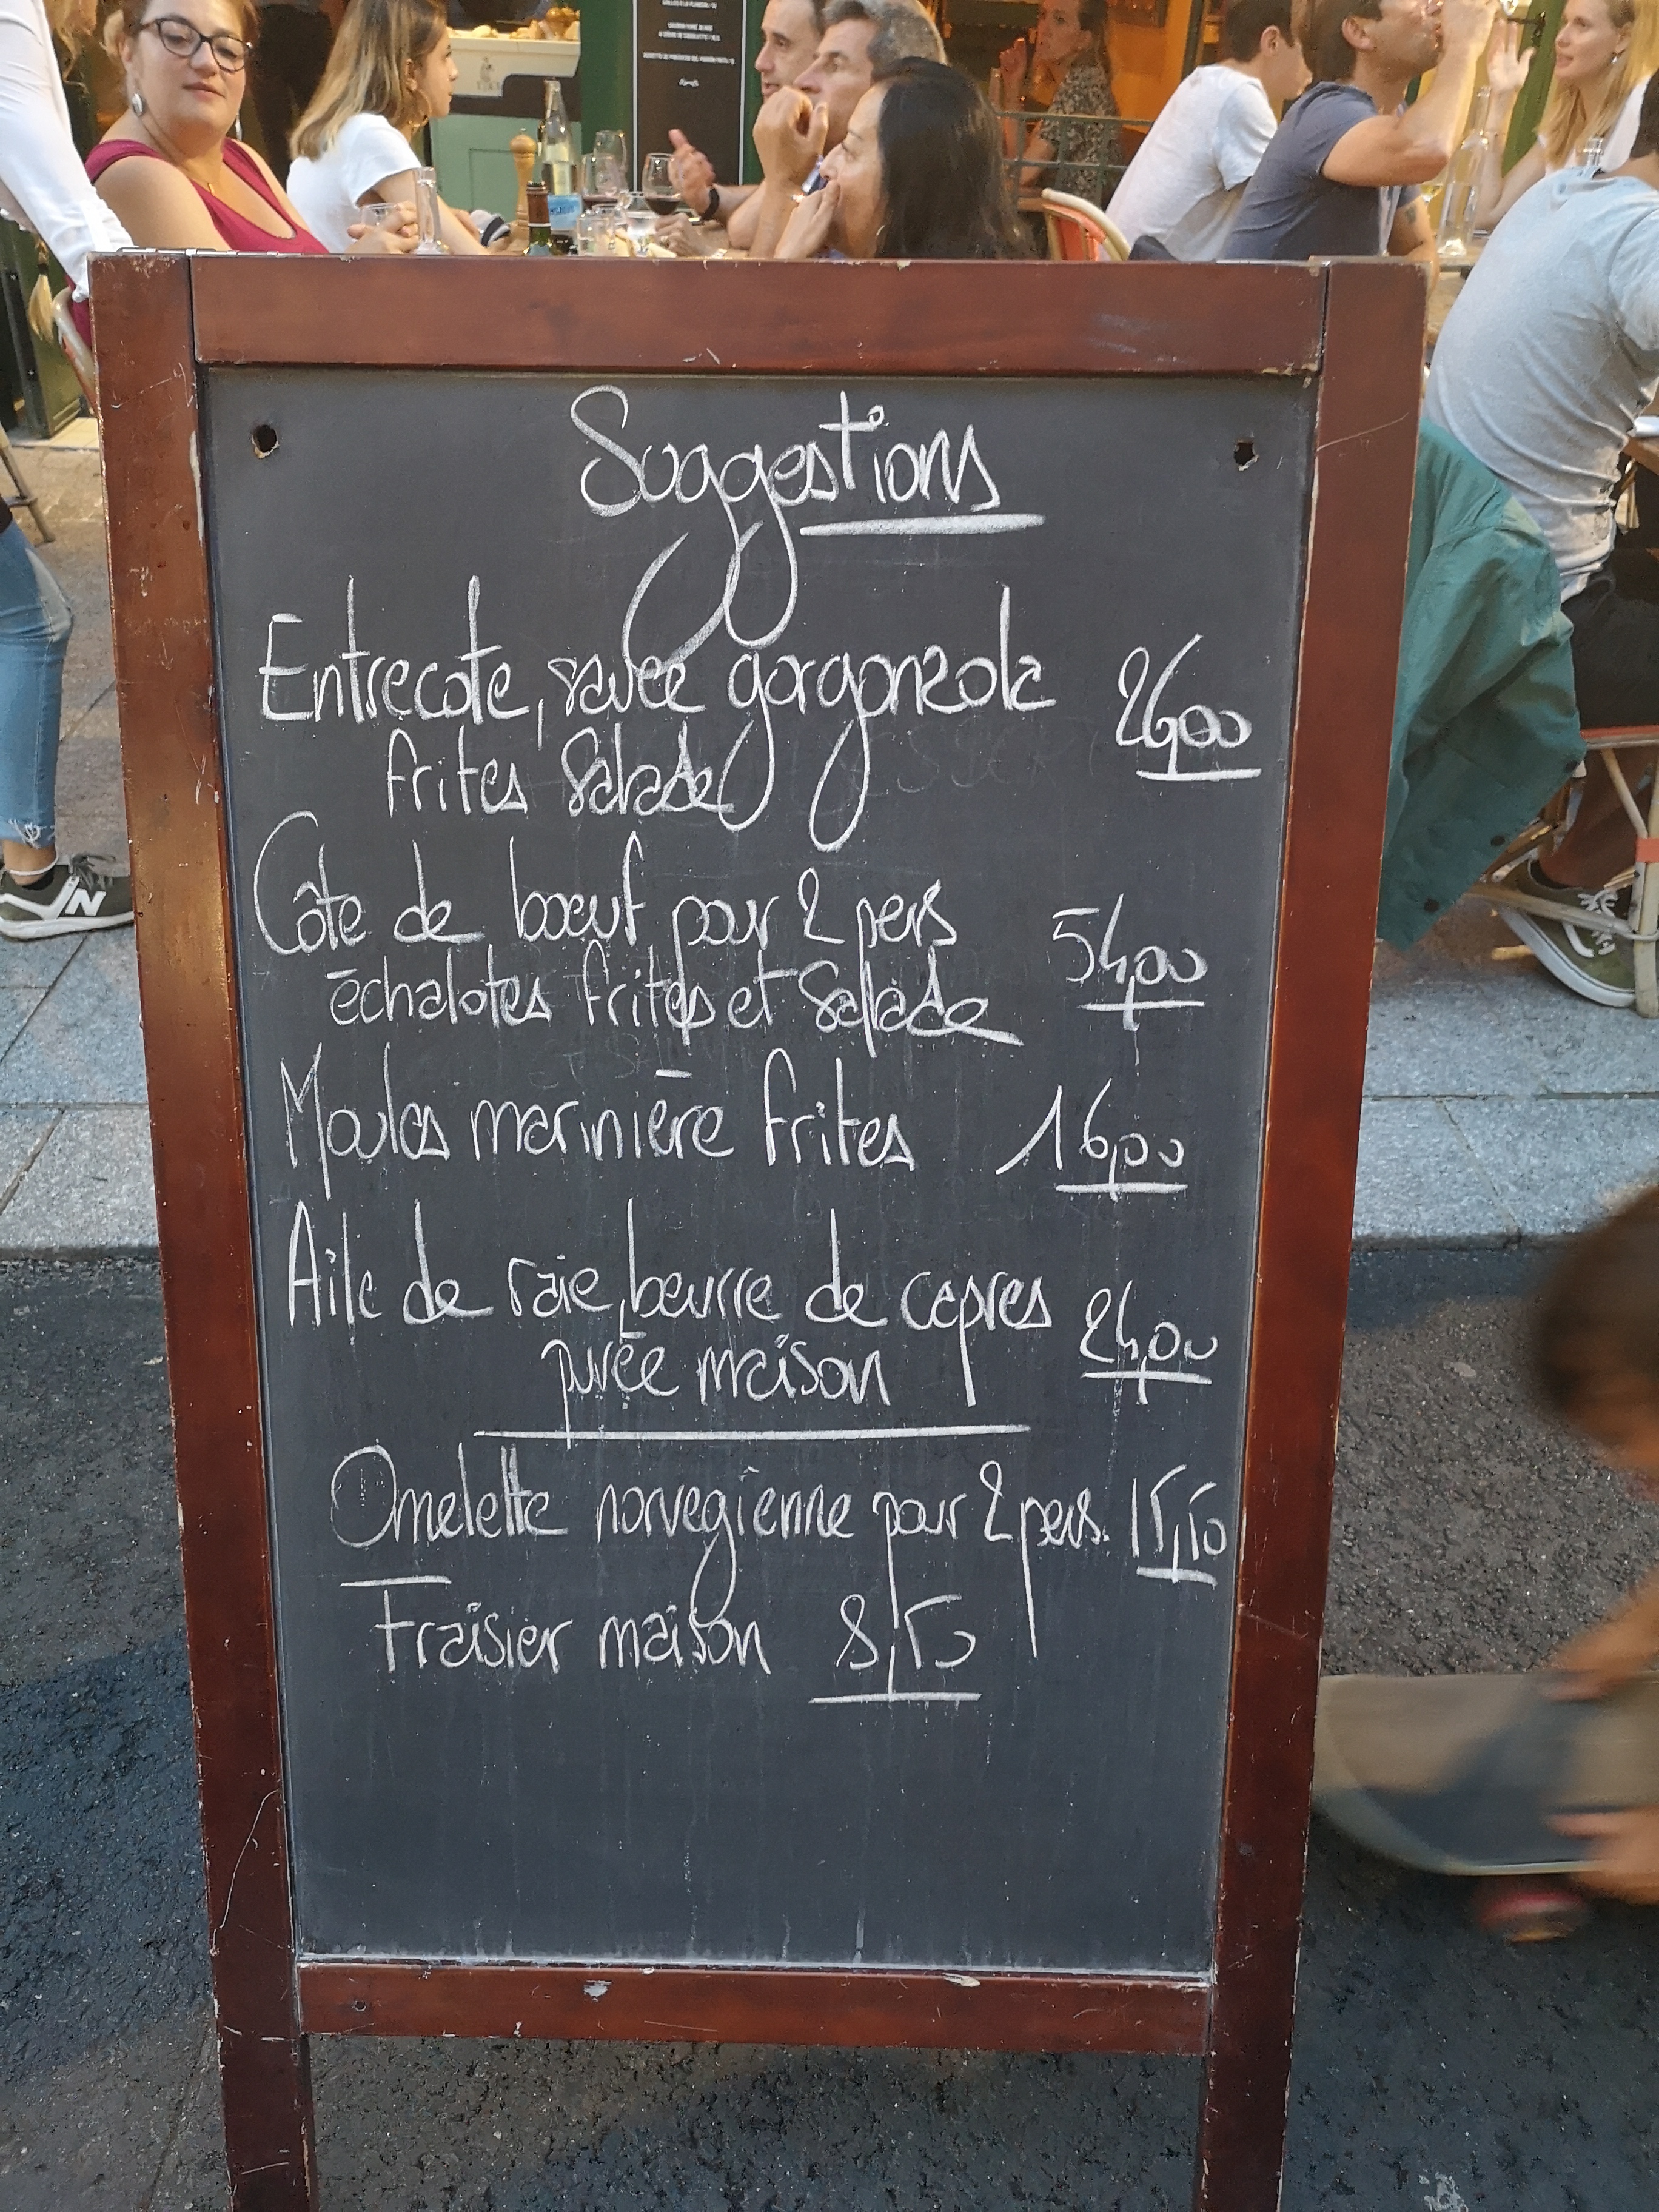 Suggestions
Entrecote, sauce gorgonzola 26,00
frites Salade
Côte de boeuf pour 2 pers 54,00
échalotes frites et Salade
Moules marinière frites 16,00
Aile de raie, beurre de capres 24,00
purée maison
Omelette norvegienne pour 2 pers. 15,50
Fraisier maison 8,50
N